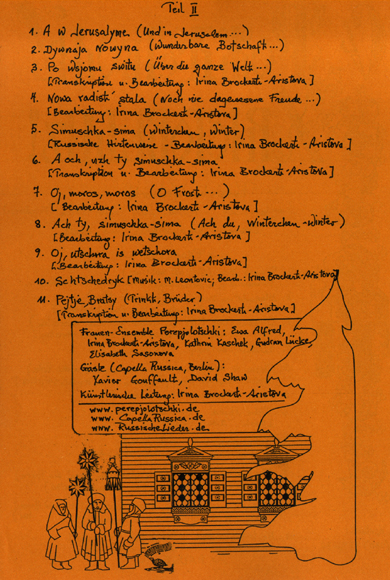 Teil II
1. A w Jerusalyme (Und in Jerusalem...)
2. Dywnaja Nowyna (Wunderbare Botschaft...)
3. Po wsjomu switu (Über die ganze Welt...)
[Transkription u. Bearbeitung: Irina Brockert-Aristova]
4. Nowa radist' stala (Noch nie dagewesene Freude...)
[Bearbeitung: Irina Brockert-Aristova]
5. Simuschka-sima (Winterchen, Winter)
[Russische Hirtenweise - Bearbeitung: Irina Brockert-Aristova]
6. A och, uzh ty simuschka-sima
[Transkription u. Bearbeitung: Irina Brockert-Aristova]
7. Oj, moros, moros (O Frost...)
[Bearbeitung: Irina Brockert-Aristova]
8. Ach ty, simuschka-sima (Ach du, Winterchen-Winter)
[Bearbeitung: Irina Brockert-Aristova]
9. Oj, utschora is wetschora
[Bearbeitung: Irina Brockert-Aristova]
10. Schtschedryk [Musik: M. Leontovič; Bearb.: Irina Brockert-Aristova]
11. Pejtje, Bratsy (Trinkt, Brüder)
[Transkription u Bearbeitung: Irina Brockert-Aristova]
Frauen-Ensemble Perepjolotschki: Ewa Alfred,
Irina Brockert-Aristova, Kathrin Kaschek, Gudrun Lücke,
Elisabeth Sasonova
Gäste (Capella Russica, Berlin):
Xavier Gouffault, David Shaw
Künstlerische Leitung: Irina Brockert-Aristova
www.perepjolotschki.de
www.CapellaRussica.de
www.RussischeLieder.de